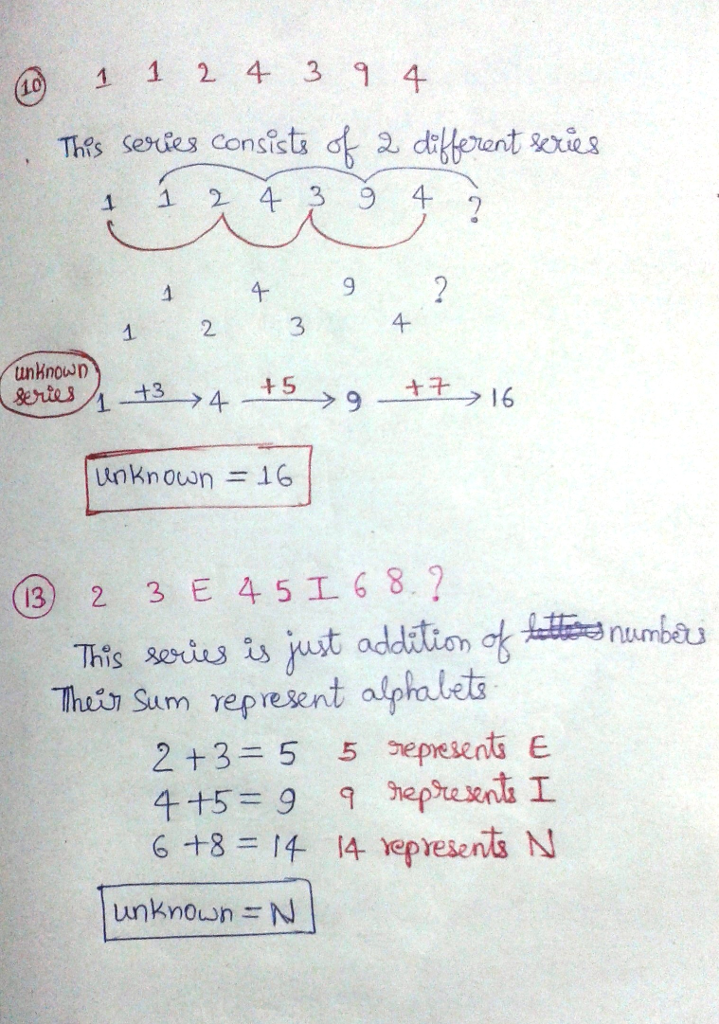 10 1 1 2 4 3 9 4
This series consists of 2 different series
1 1 2 4 3 9 4 ?
1 4 9 ?
1 2 3 4
unknown
series
1 +3 4 +5 9 +7 16
unknown = 16
13 2 3 E 4 5 I 6 8 ?
This series is just addition of numbers
Their sum represent alphabets.
2 + 3 = 5 5 represents E
4 + 5 = 9 9 represents I
6 + 8 = 14 14 represents N
unknown = N